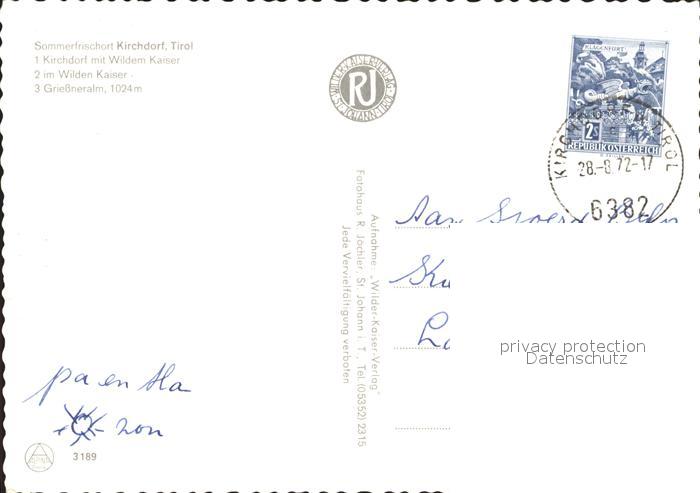 Sommerfrischort Kirchdorf, Tirol
1 Kirchdorf mit Wildem Kaiser
2 im Wilden Kaiser
3 Grießneralm, 1024 m
WILDER-KAISER-VERLAG
RJ
ST. JOHANN TIROL
KLAGENFURT
2S
REPUBLIK ÖSTERREICH
KIRCHDORF IN TIROL
28.-8.72-17
6382
Aufnahme: „Wilder-Kaiser-Verlag"
Fotohaus R. Jöchler, St. Johann i. T., Tel. (05352) 2315
Jede Vervielfältigung verboten
Aan
privacy protection
Datenschutz
pa en Ma
zon
3189